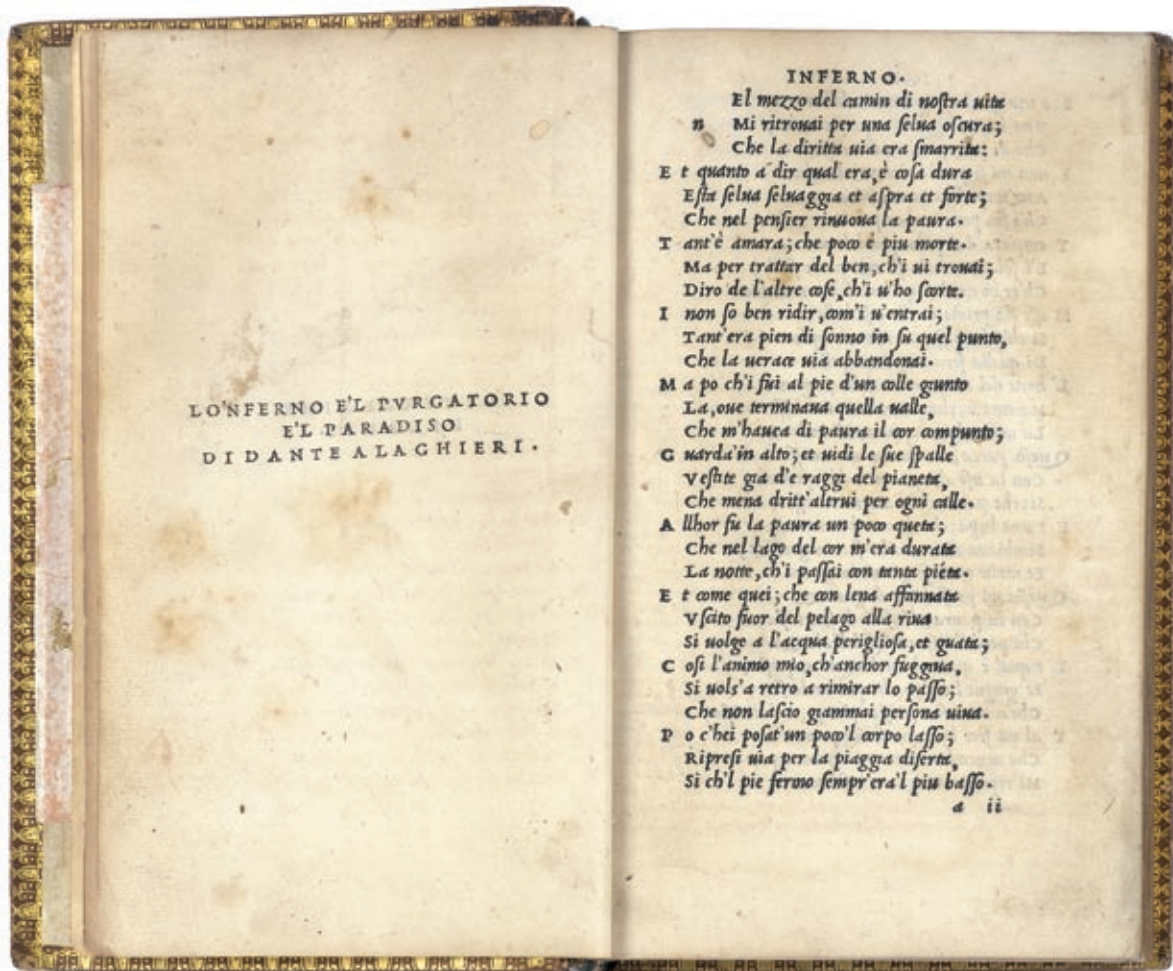 LO'NFERNO E'L PVRGATORIO
E'L PARADISO
DI DANTE ALAGHIERI.
INFERNO.
El mezzo del camin di nostra uita
n Mi ritrouai per una selua oscura;
Che la diritta uia era smarrita:
E t quanto a dir qual era, è cosa dura
Esta selua seluaggia et aspra et forte;
Che nel pensier rinuoua la paura.
T ant'è amara; che poco è piu morte.
Ma per trattar del ben, ch'i ui trouai;
Diro de l'altre cose, ch'i u'ho scorte.
I non so ben ridir, com'i u'entrai;
Tant'era pien di sonno in su quel punto,
Che la uerace uia abbandonai.
M a po ch'i fui al pie d'un colle giunto
La, oue terminaua quella ualle,
Che m'hauea di paura il cor compunto;
G uarda'in alto; et uidi le sue spalle
Vestite gia d'e raggi del pianeta,
Che mena dritt'altrui per ogni calle.
A llhor fu la paura un poco queta;
Che nel lago del cor m'era durata
La notte, ch'i passai con tanta piéta.
E t come quei; che con lena affannata
Vscito fuor del pelago alla riua
Si uolge a l'acqua perigliosa, et guata;
C osi l'animo mio, ch'anchor fuggiua,
Si uols'a retro a rimirar lo passo;
Che non lascio giammai persona uiua.
P o c'hei posat'un poco'l corpo lasso;
Ripresi uia per la piaggia diserta,
Si ch'l pie fermo sempr'era'l piu basso.
a ii